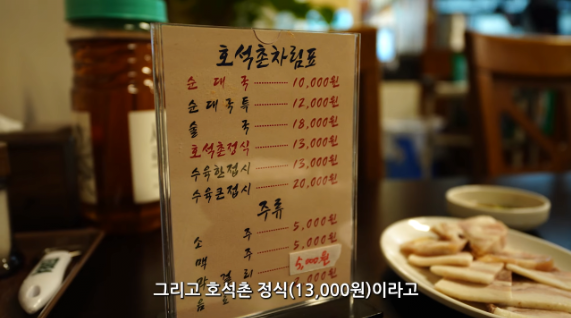 호석촌차림표
순대국 10,000원
순대국특 12,000원
술국 18,000원
호석촌정식 13,000원
수육한접시 13,000원
수육큰접시 20,000원
주류
소주 5,000원
맥주 5,000원
5,000원
그리고 호석촌 정식(13,000원)이라고